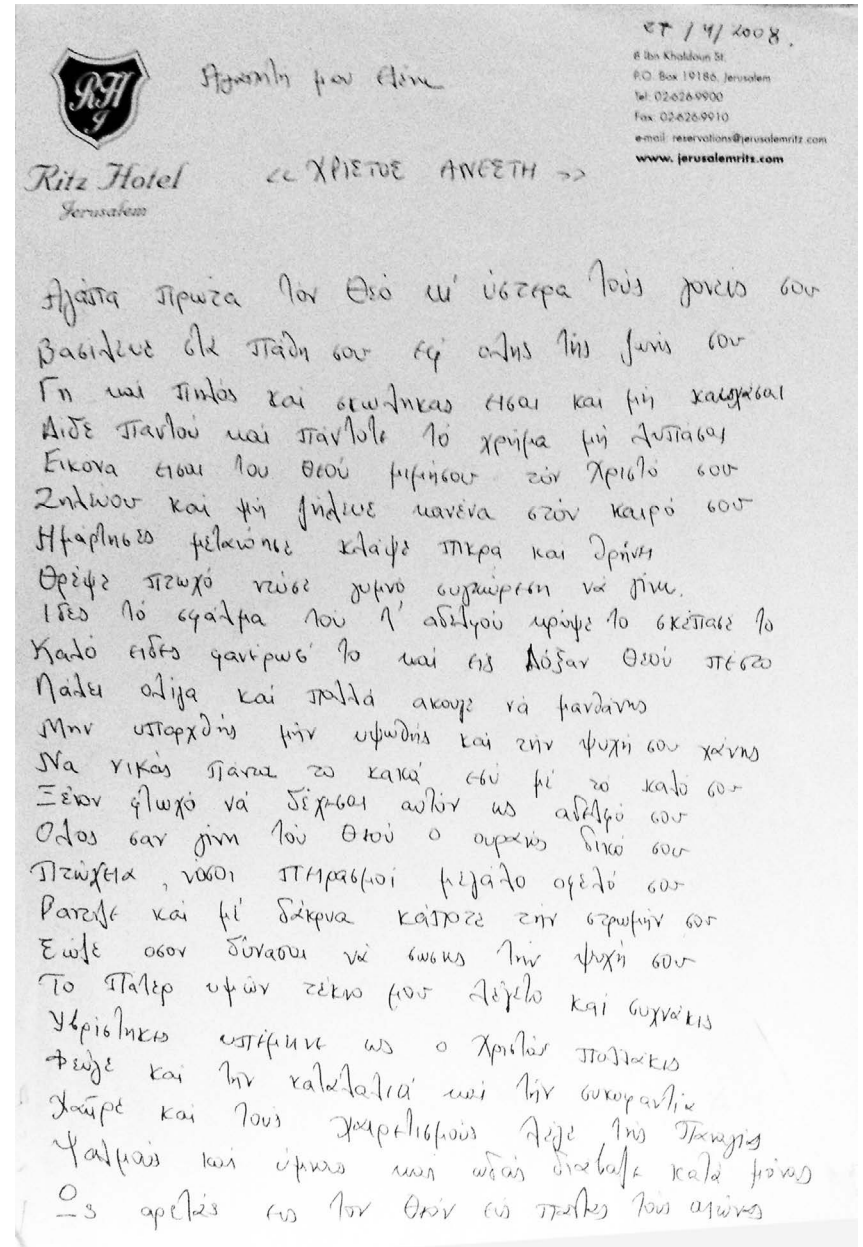 27/4/2008.
6 Ibn Khaldoun St.
P.O. Box 19186, Jerusalem
Tel: 02-626-9900
Fax: 02-626-9910
e-mail: reservations@jerusalemritz.com
www.jerusalemritz.com
RH
J
Ritz Hotel
Jerusalem
Αγαπητή μου Ελένη
<< ΧΡΙΣΤΟΣ ΑΝΕΣΤΗ >>
Αγάπα πρώτα τον Θεό κι' ύστερα τούς γονείς σου
Βασίλευε στά πάθη σου εφ' όλης της ζωής σου
Γη και πηλός και σκώληκας είσαι και μή καυχάσαι
Δίδε παντού και πάντοτε τό χρήμα μή λυπάσαι
Εικόνα είσαι του Θεού μιμήσου τόν Χριστό σου
Ζηλώσου και μή ζήλευε κανένα στόν καιρό σου
Ημάρτησες μετανόησε κλάψε πικρά και θρήνει
Θρέψε πτωχό ντύσε γυμνό συγχώρεση νά γίνει.
Ίδες τό σφάλμα του τ' αδελφού κρύψε το σκέπασέ το
Καλό είδες φανέρωσ' το και εις Δόξαν Θεού πέστο
Λάλει ολίγα και πολλά άκουγε νά μανθάνης
Μην υψωθής και τήν ψυχή σου χάνης
Να νικάς πάντα το κακό εσύ μέ το καλό σου
Ξένον φτωχό νά δέχεσαι αυτόν ως αδελφό σου
Όλος σαν γίνη τού Θεού ο ουρανός δικό σου
Πτώχεια, νόσοι πειρασμοί μεγάλο όφελό σου
Ράντιζε και μέ δάκρυα κάποτε τήν στρωμνήν σου
Σώζε όσον δύνασαι νά σώσης τήν ψυχή σου
Το Πάτερ υμών τέκνο μου λέγετο και συχνάκις
Υβρίστηκες υπέμεινε ως ο Χριστός πολλάκις
Φεύγε και τήν καταλαλιά και τήν συκοφαντία
Χαίρε και τους χαιρετισμούς λέγε της Παναγίας
Ψαλμούς και ύμνους και ωδάς διάβαζε κατά μόνας
Ως αρετάς εις τον Θεόν εις πάντας τούς αιώνας